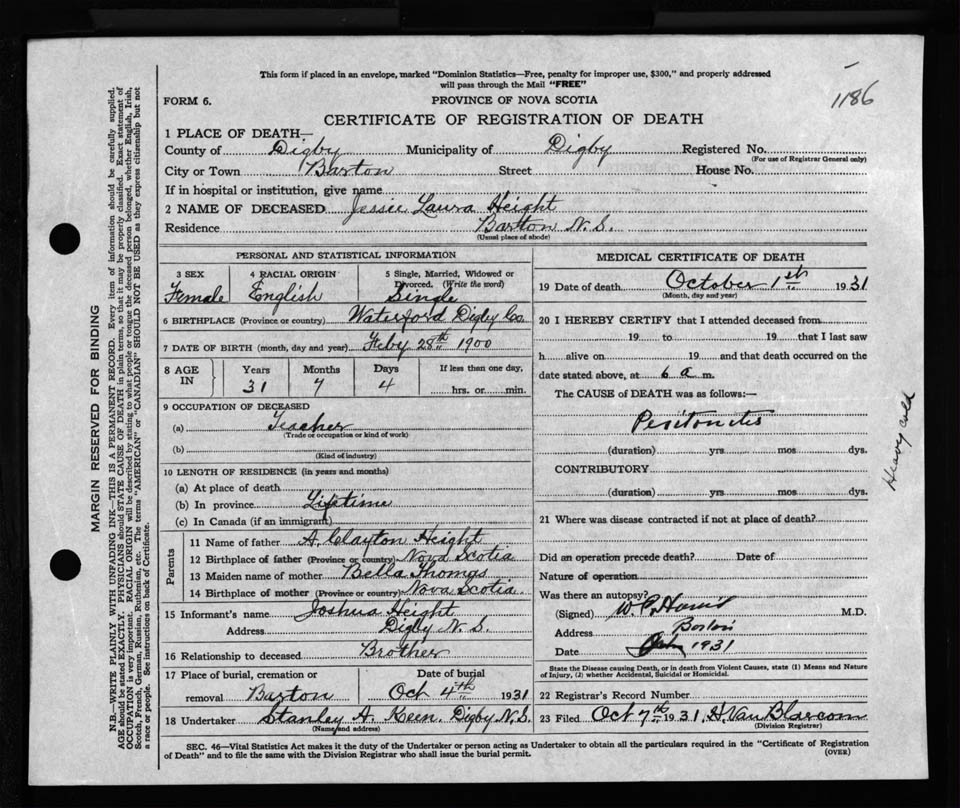 This form if placed in an envelope, marked "Dominion Statistics—Free, penalty for improper use, $300," and properly addressed
will pass through the Mail "FREE"
1186
FORM 6.
PROVINCE OF NOVA SCOTIA
CERTIFICATE OF REGISTRATION OF DEATH
1 PLACE OF DEATH—
County of Digby Municipality of Digby Registered No.
(For use of Registrar General only)
City or Town Barton Street House No.
If in hospital or institution, give name
2 NAME OF DECEASED Jessie Laura Height
Residence Barton N.S.
(Usual place of abode)
PERSONAL AND STATISTICAL INFORMATION
3 SEX
Female
4 RACIAL ORIGIN
English
5 Single, Married, Widowed or
Divorced. (Write the word)
Single
6 BIRTHPLACE (Province or country) Waterford Digby Co.
7 DATE OF BIRTH (month, day and year) Feby 28th 1900
8 AGE IN
Years Months Days If less than one day,
31 7 4 hrs. or min.
9 OCCUPATION OF DECEASED
(a) Teacher
(Trade or occupation or kind of work)
(b)
(Kind of industry)
10 LENGTH OF RESIDENCE (in years and months)
(a) At place of death
(b) In province Lifetime
(c) In Canada (if an immigrant)
Parents
11 Name of father A. Clayton Height
12 Birthplace of father (Province or country) Nova Scotia
13 Maiden name of mother Bella Thomas
14 Birthplace of mother (Province or country) Nova Scotia.
15 Informant's name Joshua Height
Address Digby N.S.
16 Relationship to deceased Brother
17 Place of burial, cremation or Date of burial
removal Barton Oct 4th 1931
18 Undertaker Stanley A. Keen. Digby N.S.
(Name and address)
MEDICAL CERTIFICATE OF DEATH
19 Date of death October 1st 1931
(Month, day and year)
20 I HEREBY CERTIFY that I attended deceased from
19 to 19 that I last saw
h alive on 19 and that death occurred on the
date stated above, at 6 a m.
The CAUSE of DEATH was as follows:—
Peritonitis
(duration) yrs. mos. dys.
CONTRIBUTORY
(duration) yrs. mos. dys.
Heavy cold
21 Where was disease contracted if not at place of death?
Did an operation precede death? Date of
Nature of operation
Was there an autopsy?
(Signed) W. M.D.
Address
Date 1931
State the Disease causing Death, or in death from Violent Causes, state (1) Means and Nature
of Injury, (2) whether Accidental, Suicidal or Homicidal.
22 Registrar's Record Number
23 Filed Oct 7th 1931, H. Van Blarcom
(Division Registrar)
SEC. 46—Vital Statistics Act makes it the duty of the Undertaker or person acting as Undertaker to obtain all the particulars required in the "Certificate of Registration
of Death" and to file the same with the Division Registrar who shall issue the burial permit.
(OVER)
MARGIN RESERVED FOR BINDING
N.B.—WRITE PLAINLY WITH UNFADING INK—THIS IS A PERMANENT RECORD. Every item of information should be carefully supplied.
AGE should be stated EXACTLY. PHYSICIANS should STATE CAUSE OF DEATH in plain terms, so that it may be properly classified. Exact statement of
OCCUPATION is very important. RACIAL ORIGIN will be described by stating to what people or tongue the deceased person belonged, whether English, Irish,
Scotch, French, German, Russian, Ruthenian, etc. The terms "AMERICAN" or "CANADIAN" SHOULD NOT BE USED as they express citizenship but not
a race or people. See instructions on back of Certificate.